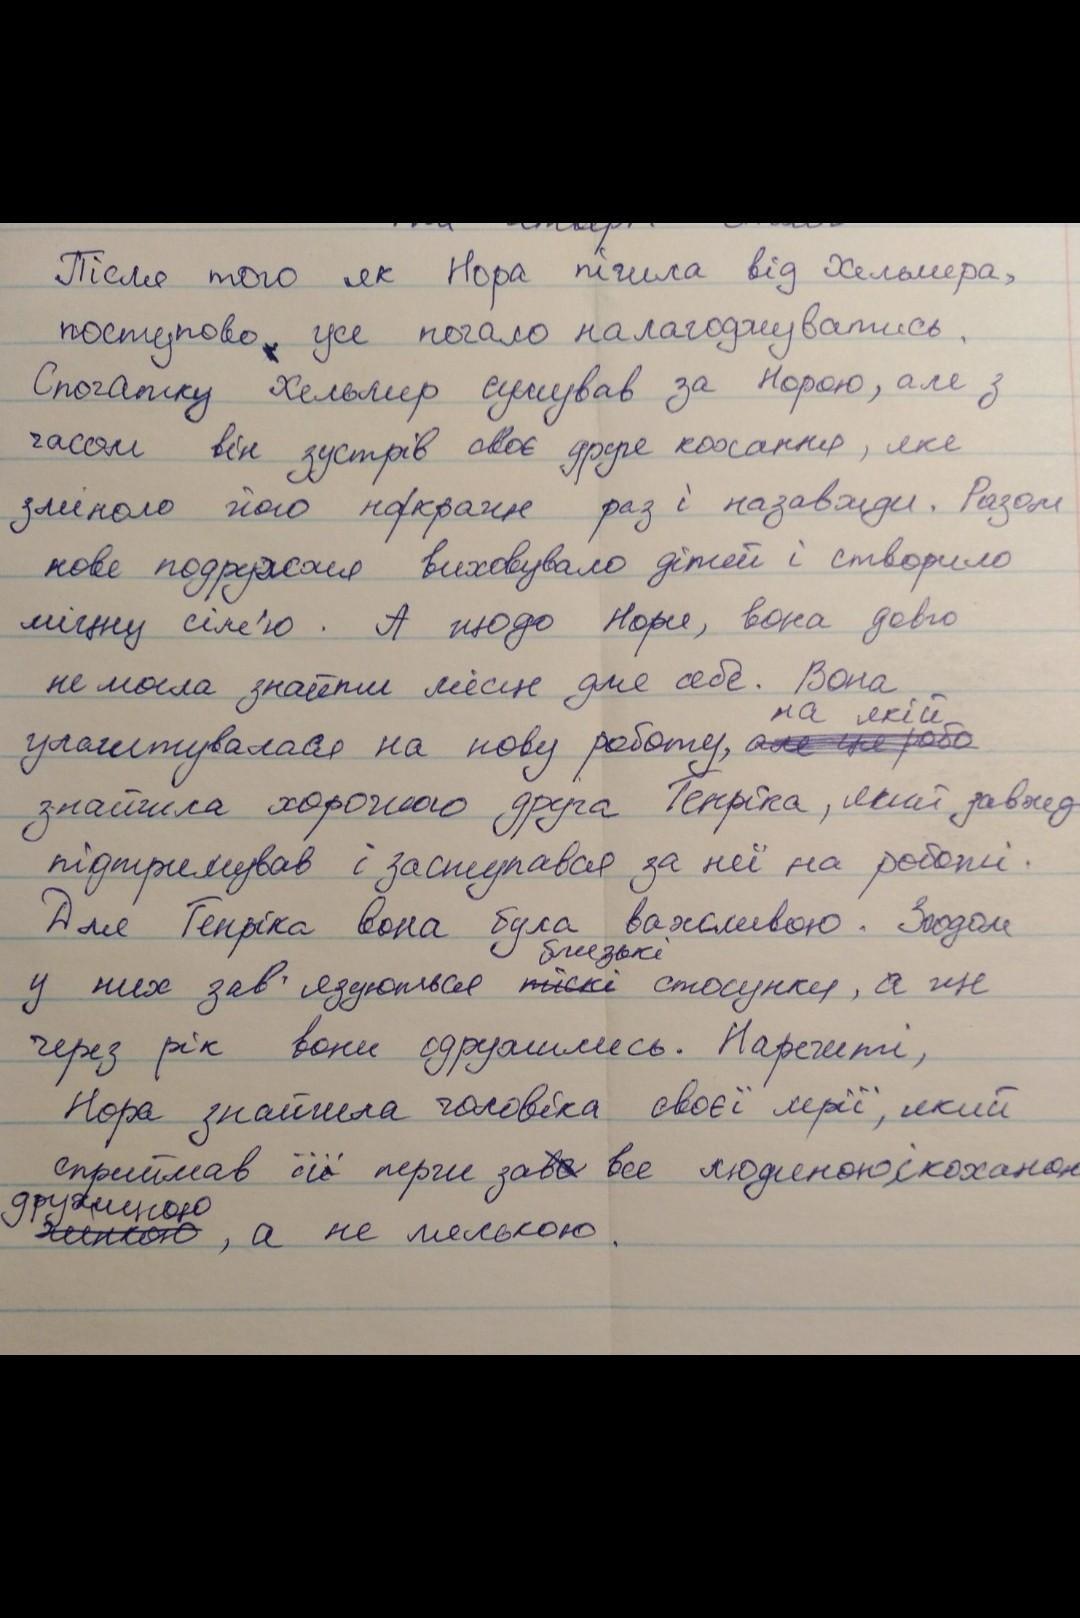 Після того як Нора пішла від Хельмера,
поступово усе почало налагоджуватись.
Спочатку Хельмер сумував за Норою, але з
часом він зустрів своє друге кохання, яке
змінило його на краще раз і назавжди. Разом
нове подружжя виховувало дітей і створило
міцну сім'ю. А щодо Нори, вона довго
не могла знайти місце для себе. Вона
на якій
улаштувалася на нову роботу, але ця робо
знайшла хорошого друга Генріка, який завжд
підтримував і заступався за неї на роботі.
Для Генріка вона була важливою. Згодом
близькі
у них зав'язуються стосунки, а ще
через рік вони одружились. Нарешті,
Нора знайшла чоловіка своєї мрії, який
сприймав її перш за все людиною і коханою
дружиною
жінкою, а не лялькою.